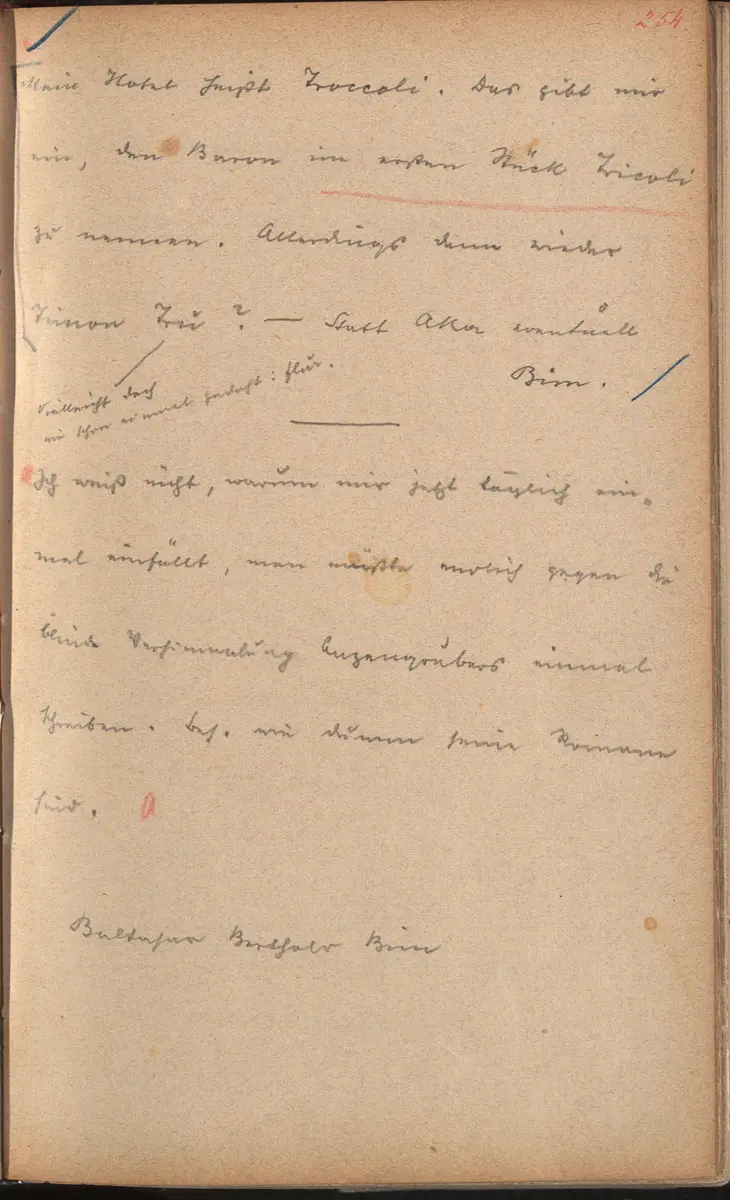 254.
Mein Hotel heißt Troccoli. Das gibt mir
ein, den Baron im ersten Stück Tricoli
zu nennen. Allerdings dann wieder
Timon Tru? — Statt Aka eventuell
Bim.
Vielleicht doch
wie schon einmal gedacht: Flur.
Ich weiß nicht, warum mir jetzt täglich ein-
mal einfällt, man müßte endlich gegen die
blinde Verhimmelung Anzengrubers einmal
schreiben. Bes. wie dumm seine Romane
sind.
Baltasar Berthold Bim